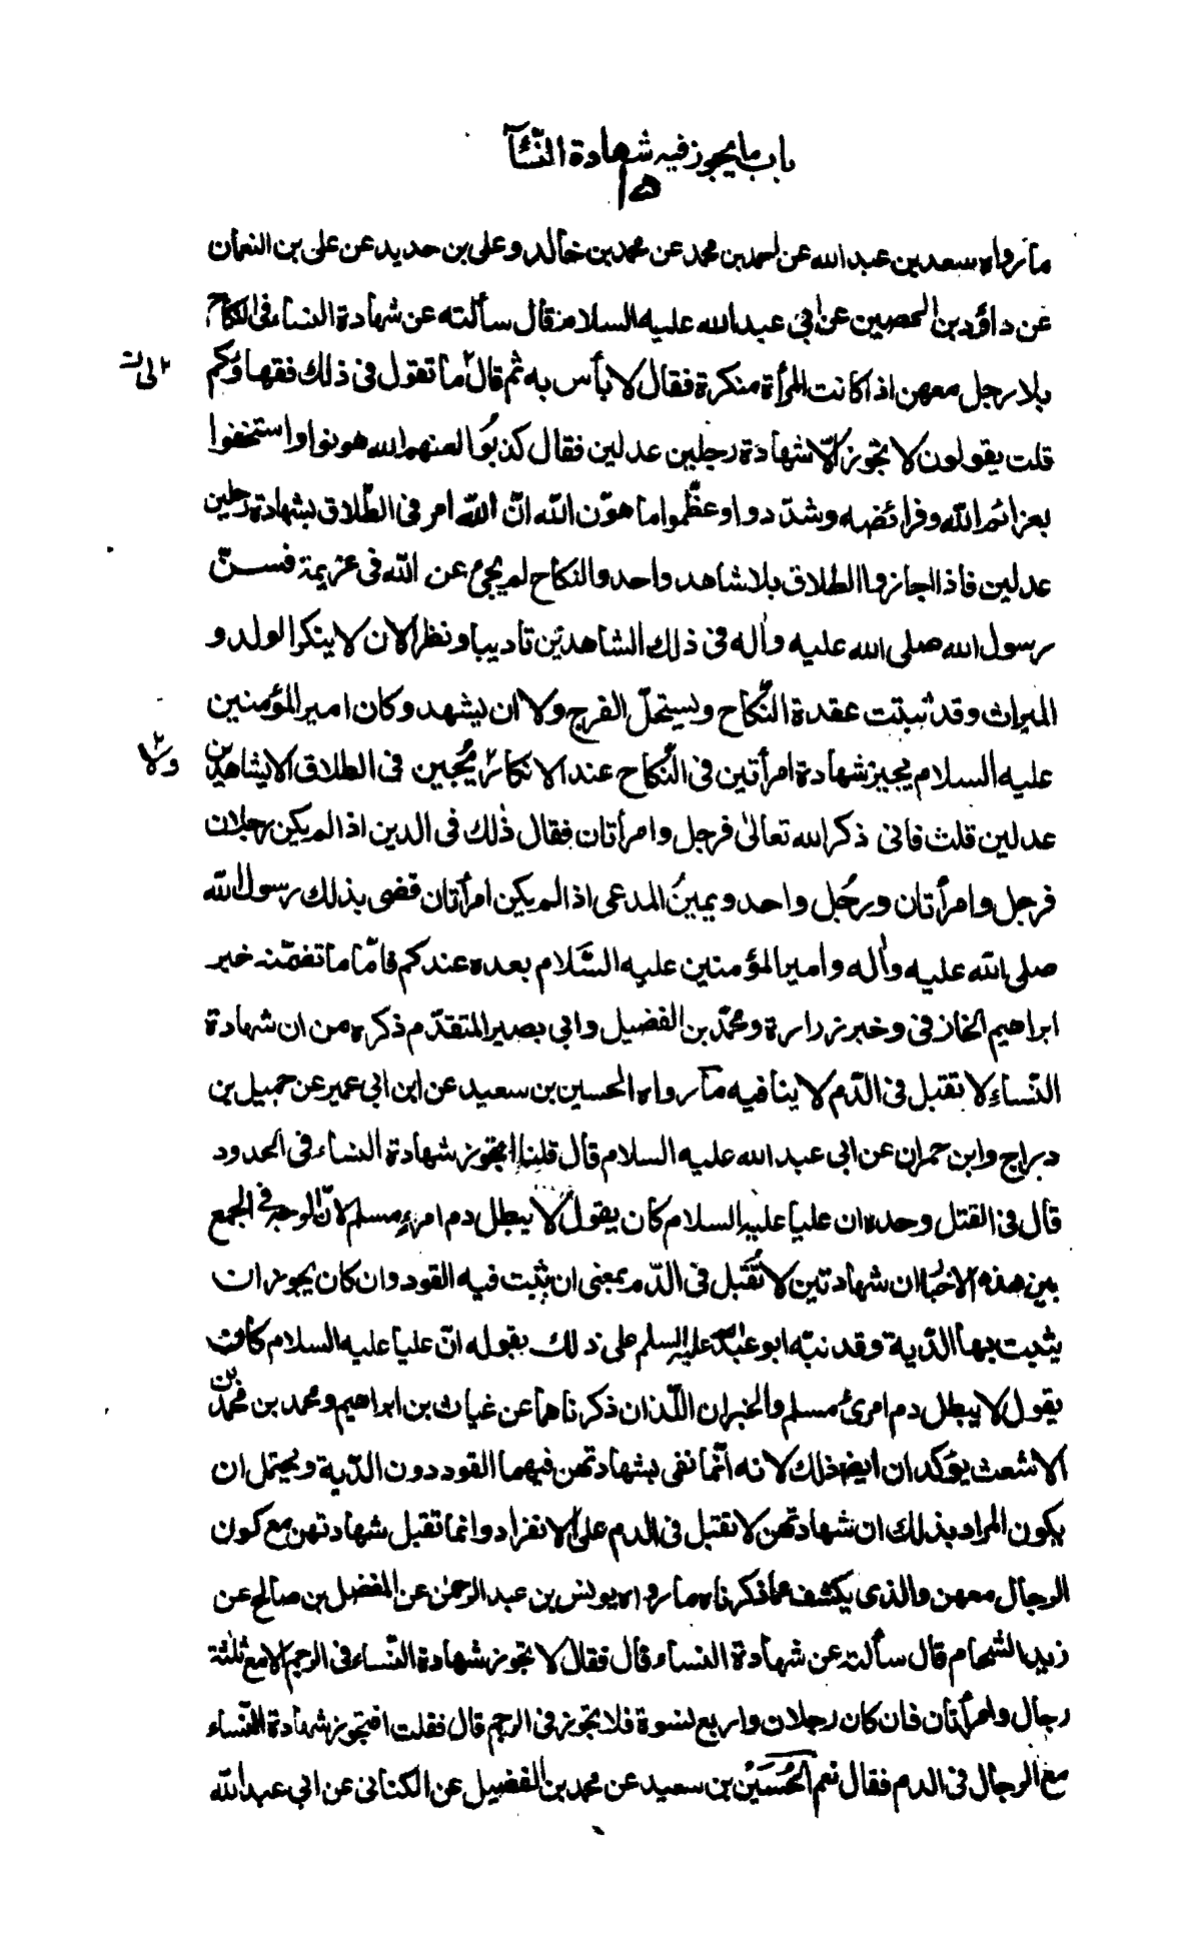 باب ما يجوز فيه شهادة النسآء
١٥
ما رواه سعد بن عبد الله عن احمد بن محمد عن محمد بن خالد وعلى بن حديد عن على بن النعمان
عن داؤد بن الحصين عن ابى عبد الله عليه السلام قال سألته عن شهادة النساء فى النكاح
بلا رجل معهن اذا كانت المرأة منكرة فقال لا بأس به ثم قال ما تقول فى ذلك فقهاؤكم
قلت يقولون لا تجوز الّا شهادة رجلين عدلين فقال كذبوا لعنهم الله هونوا واستخفوا
بعزائم الله وفرائضه وشدّدوا وعظّموا ما هوّن الله انّ الله امر فى الطّلاق بشهادة رجلين
عدلين فاذا اجازوا الطلاق بلا شاهد واحد والنكاح لم يجئ عن الله فى عزيمة فسنّ
رسول الله صلى الله عليه وآله فى ذلك الشاهدين تاديبا ونظرا لان لا ينكر الولد و
الميراث وقد ثبتت عقدة النّكاح ويستحلّ الفرج ولا ان يشهد وكان امير المؤمنين
عليه السلام يجيز شهادة امرأتين فى النّكاح عند الانكار يجبين فى الطلاق الا بشاهدين
عدلين قلت فانى ذكر الله تعالى فرجل وامرأتان فقال ذلك فى الدين اذا لم يكن رجلان
فرجل وامرأتان ورجُل واحد ويمينُ المدعى اذا لم يكن امرأتان قضى بذلك رسول الله
صلى الله عليه وآله وامير المؤمنين عليه السّلام بعده عندكم فامّا ما تضمّنه خبر
ابراهيم الخارفى وخبر زرارة ومحمّد بن الفضيل وابى بصير المتقدّم ذكره من ان شهادة
النّساء لا تقبل فى الدّم لا ينافيه مآ رواه الحسين بن سعيد عن ابن ابى عمير عن جميل بن
دراج وابن حمران عن ابى عبد الله عليه السلام قال قلنا اتجوز شهادة النساء فى الحدود
قال فى القتل وحده ان عليا عليه السلام كان يقول لا يبطل دم امرء مسلم لانّ الوجه فى الجمع
بين هذه الاخبار ان شهادتين لا تُقَبل فى الدّم بمعنى ان يثبت فيه القود وان كان يجوز ان
يثبت بها الدّية وقد نبّه ابو عبد الله عليه السلم على ذلك بقوله انّ عليا عليه السلام كان
يقول لا يبطل دم امرئ مسلم والخبران اللّذان ذكرناهما عن غياث بن ابراهيم ومحمد بن محمّد بن
الاشعث يؤكدان ايضا ذلك لانه انّما نفى بشهادتهن فيهما القود دون الدّية ويحتمل ان
يكون المراد بذلك ان شهادتهن لا تقبل فى الدم على الانفراد وانما تقبل شهادتهن مع كون
الرجال معهن والذى يكشف عما ذكرناه ما رواه يونس بن عبد الرحمن عن المفضل بن صالح عن
زيد الشحام قال سألته عن شهادة النساء قال فقال لا تجوز شهادة النّساء فى الرجم الا مع ثلثة
رجال وامرأتان فان كان رجلان واربع نسوة فلا تجوز فى الرجم قال فقلت افتجوز شهادة النّساء
مع الرجال فى الدم فقال نعم الحُسَيْن بن سعيد عن محمد بن الفضيل عن الكنانى عن ابى عبد الله